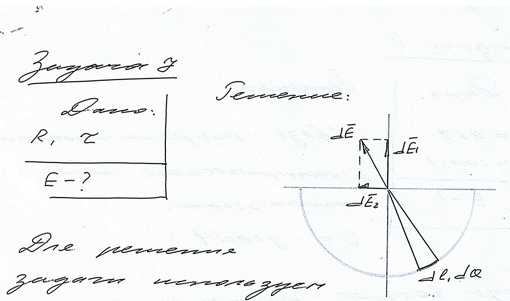 Задача 7
Дано:
R, τ
E - ?
Решение:
dE̅
dE̅₁
dE̅₂
dl, dQ
Для решения
задачи используем